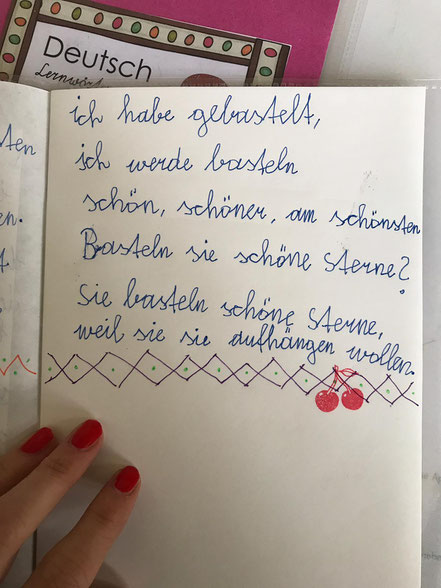 Deutsch
Lernwört
ich habe gebastelt,
ich werde basteln
schön, schöner, am schönsten
Basteln sie schöne Sterne?
Sie basteln schöne Sterne,
weil sie sie aufhängen wollen.
ten
en.